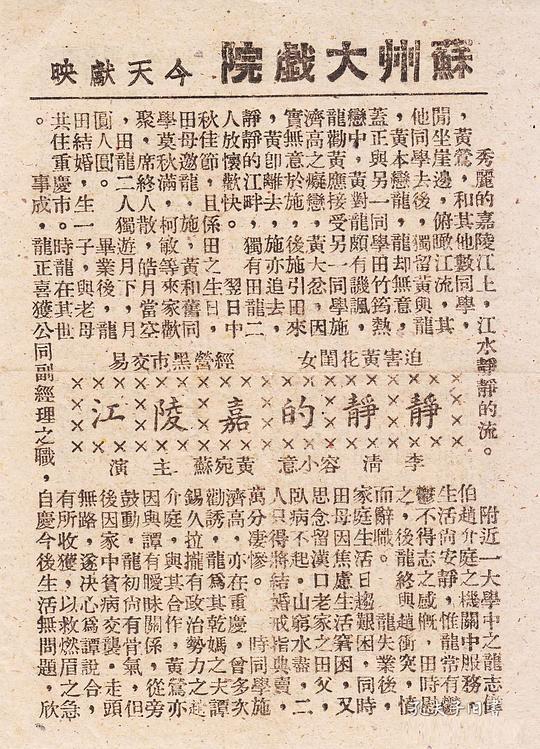 蘇州大戲院 今天献映
秀麗的嘉陵江上，江水靜靜的流。
黃鶯，和其他數同學，
閒坐崖邊，俯瞰江流，其
他同學去後，獨留黃與龍
，黃本戀龍，龍却無意，
蓋正與另一同學田竹筠熱
戀中，黃對龍頗有譏諷，
龍勸黃應接受另一同學施
濟高之癡戀，黃大忿，因
實無意於施，後施引田來
，黃卽離去，施亦追去，
靜靜的江畔，獨有田龍二
人放懷歡快。 翌日中
秋佳節，且係田之生日，
田母邀龍，施，黃和舊同
學莫秋滿，柯敏等來家歡
聚，席終人散，皓月當空
，田龍二人獨遊月下，月
圓人圓。 畢業後，龍
田結婚，生一子，與老母
共住重慶市。時龍在其世
迫害黃花閨女 經營黑市交易
靜靜的嘉陵江
李清 容小意 黃宛蘇 主演
附近一大學中之龍志偉
伯趙介庭之機關中服務，
生活尚安靜，惟龍常有
鬱不得志之感慨，田時慰
之，後龍終與趙衝突，憤
而辭職。 龍失業後，
家庭生活日趨艱困，同時
田母因焦慮生活窘困，又
思念留漢口老家之田父，
臥病不起，山窮水盡，二
人只得將結婚戒指典賣，
萬分淒慘。 時同學施
濟高，亦在重慶，曾多次
勸誘，龍爲其乾媽之夫譚
錫久拉攏有政治勢力之趙
介庭，與其合作，黃鶯亦
因與譚有曖昧關係，從旁
鼓動，龍初尚有骨氣，但
後因家中貧病交襲，走頭
無路，遂決心爲譚說合，
有所收獲，以救燃眉之急
事成，龍正喜獲公司副經理之職，
自慶今後生活無問題，欣